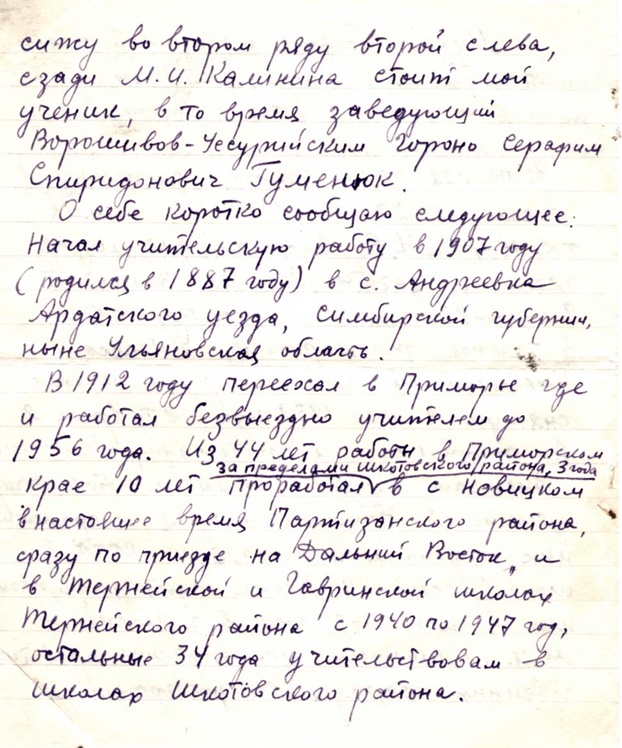 сижу во втором ряду второй слева,
сзади М.И. Калинина стоит мой
ученик, в то время заведующий
Ворошивов-Уссурийским гороно Серафим
Спиридонович Гуменюк.
О себе коротко сообщаю следующее:
Начал учительскую работу в 1907 году
(родился в 1887 году) в с. Андреевка
Ардатского уезда, Симбирской губернии,
ныне Ульяновская область.
В 1912 году переехал в Приморье где
и работал безвыездно учителем до
1956 года. Из 44 лет работы в Приморском
за пределами Шкотовского района, 3 года
крае 10 лет проработал в с Новицком
в настоящее время Партизанского района,
сразу по приезде на Дальний Восток, и
в Тернейской и Гавринской школах
Тернейского района с 1940 по 1947 год,
остальные 34 года учительствовал в
школах Шкотовского района.